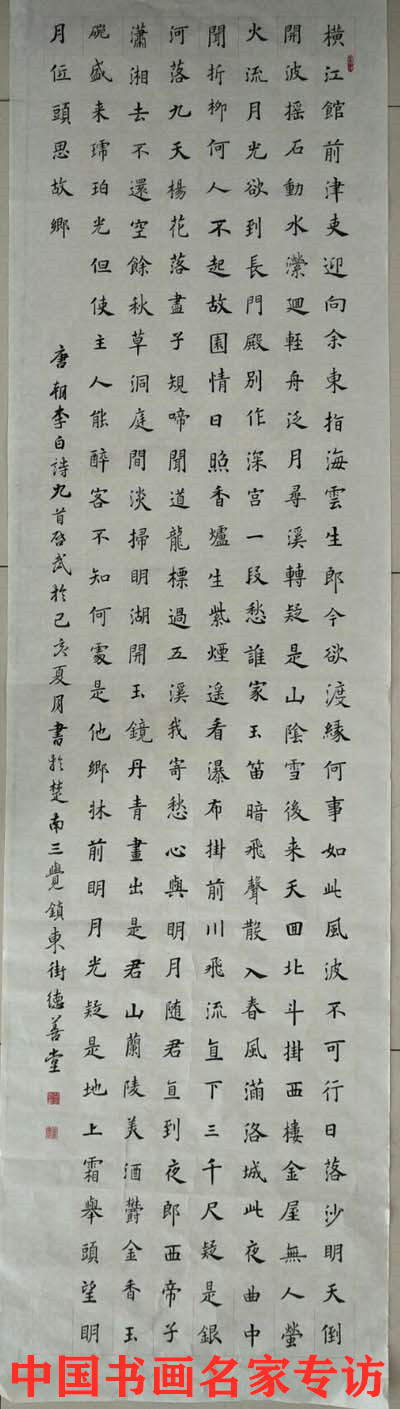 橫江館前津吏迎向余東指海雲生郎今欲渡緣何事如此風波不可行日落沙明天倒
開波摇石動水瀠迴輕舟泛月尋溪轉疑是山陰雪後来天回北斗掛西樓金屋無人螢
火流月光欲到長門殿别作深宫一段愁誰家玉笛暗飛聲散入春風滿洛城此夜曲中
聞折柳何人不起故園情日照香爐生紫煙遥看瀑布掛前川飛流直下三千尺疑是銀
河落九天楊花落盡子規啼聞道龍標過五溪我寄愁心與明月随君直到夜郎西帝子
瀟湘去不還空餘秋草洞庭間淡掃明湖開玉鏡丹青畫出是君山蘭陵美酒欝金香玉
碗盛来琥珀光但使主人能醉客不知何處是他鄉牀前明月光疑是地上霜舉頭望明
月低頭思故鄉
唐朝李白詩九首啓武於己亥夏月書於楚南三覺鎮東街德善堂
中国书画名家专访